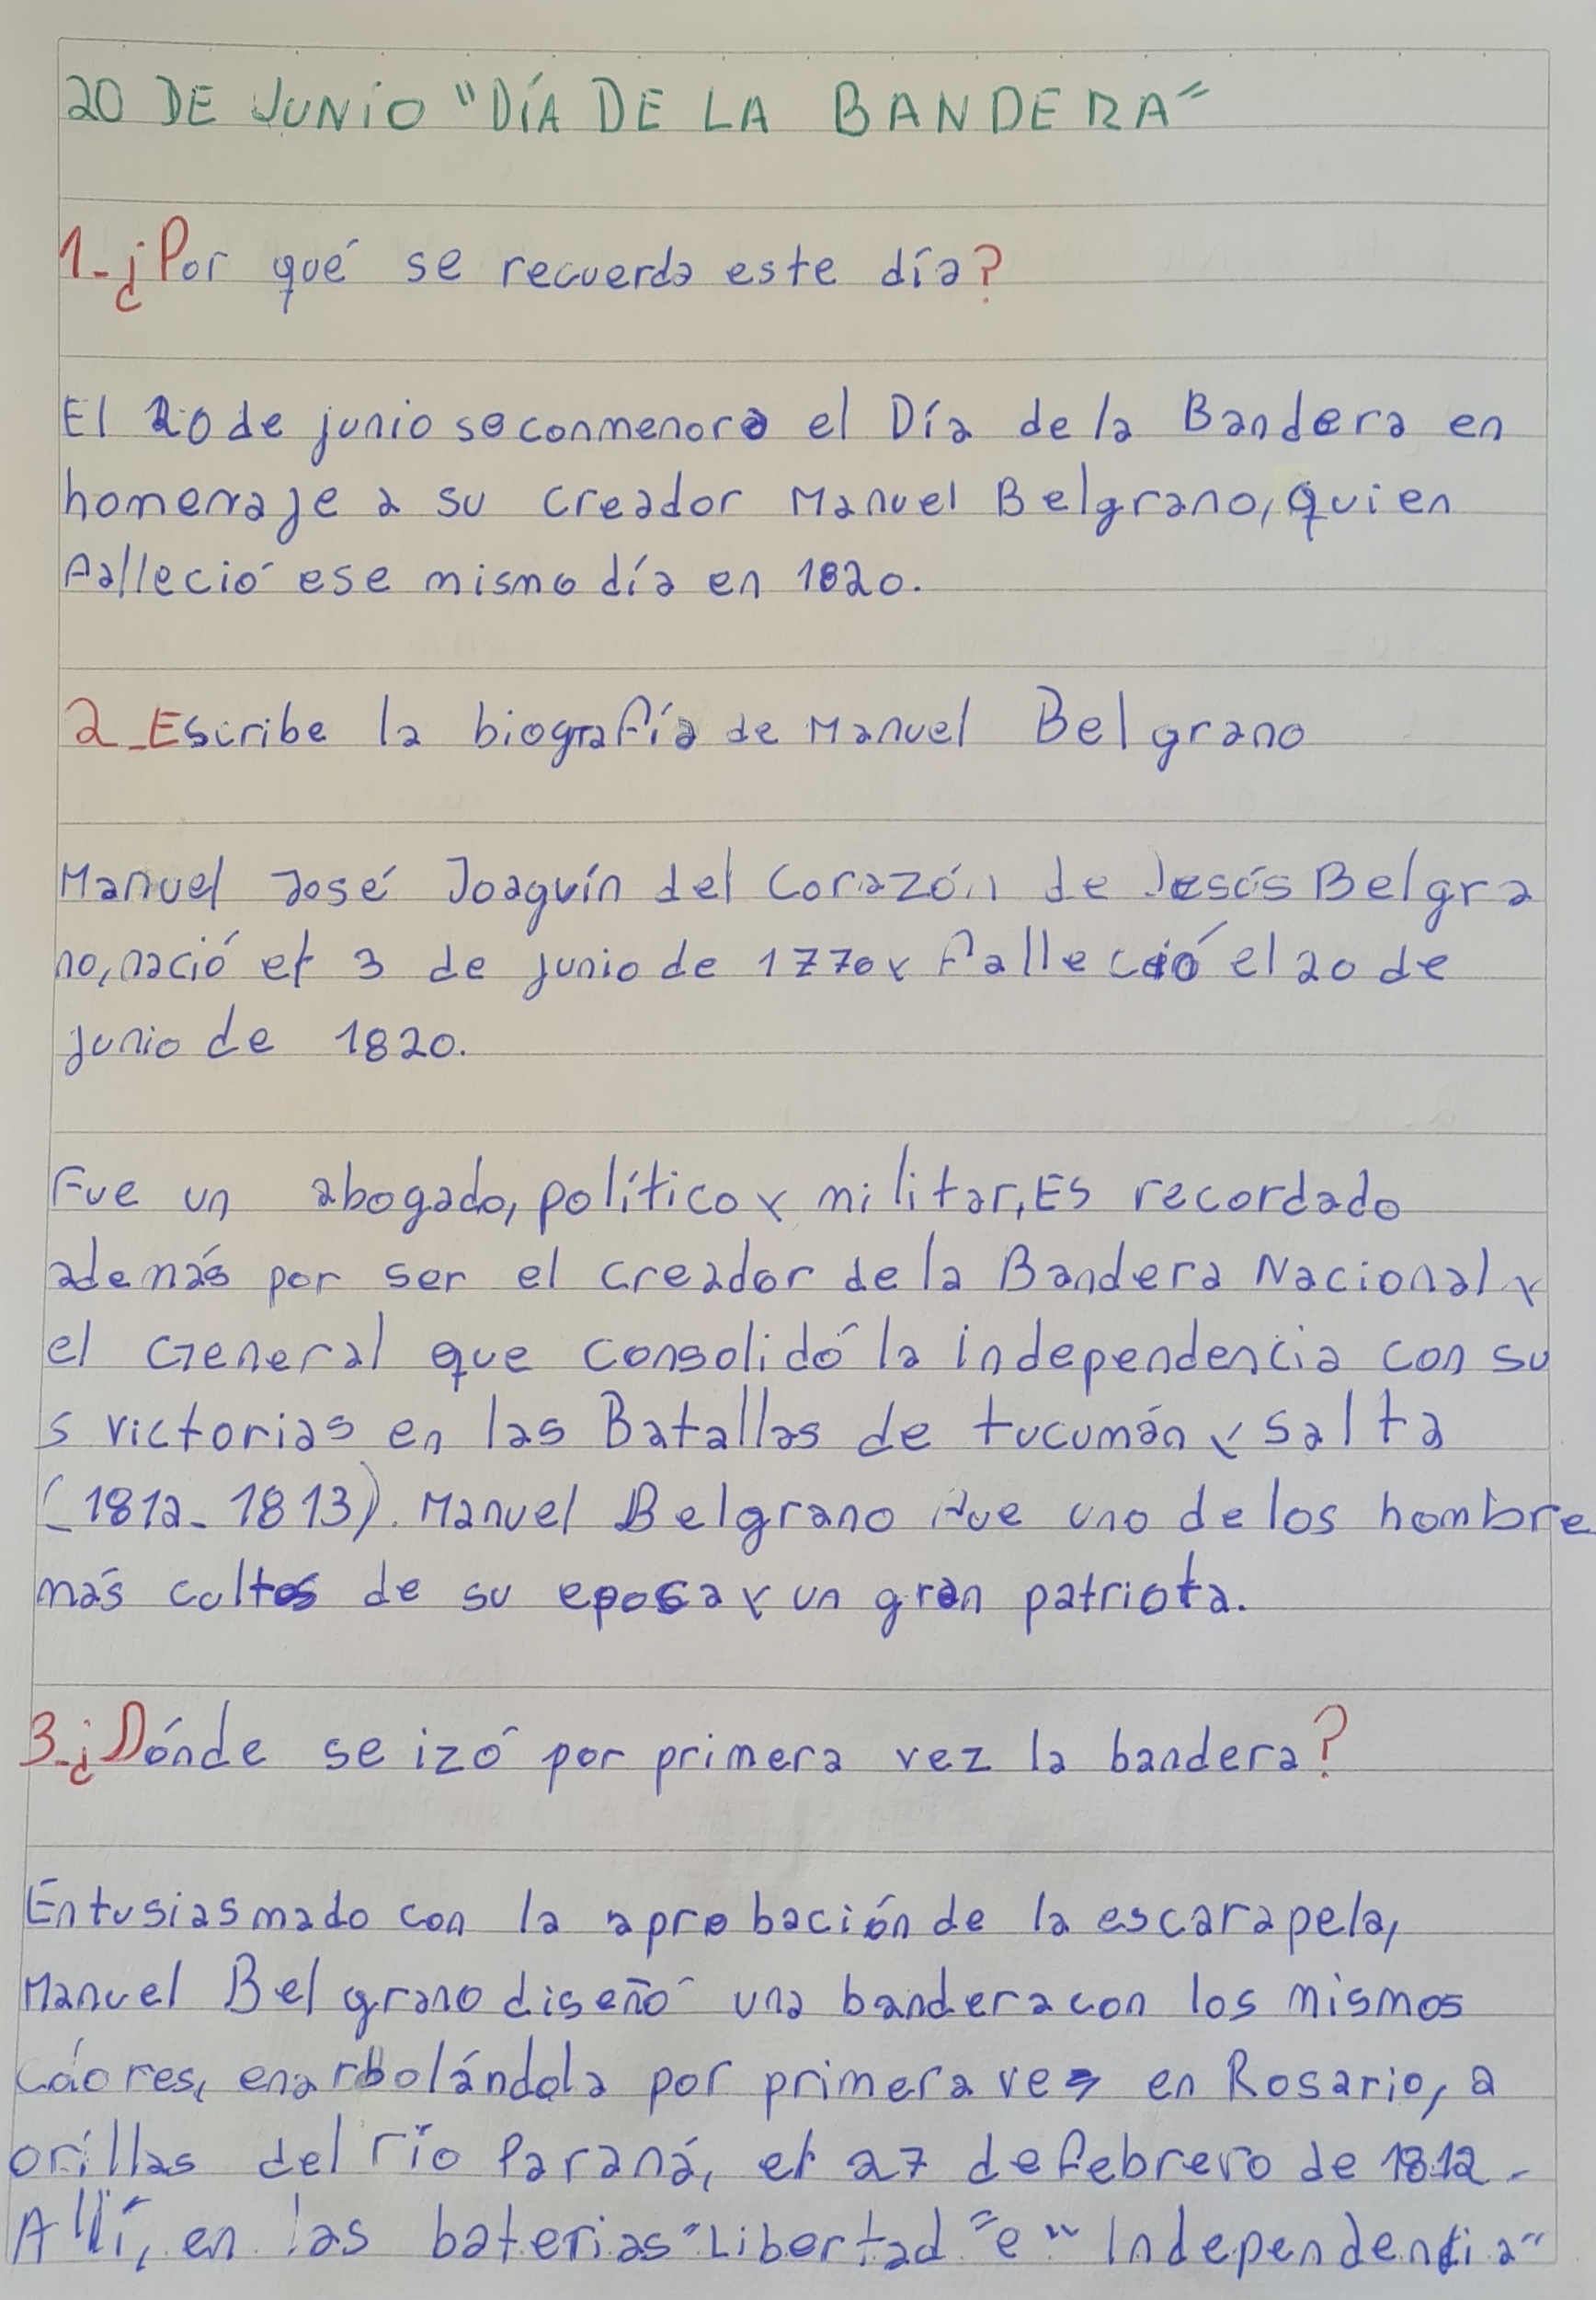 20 DE JUNIO "DÍA DE LA BANDERA"
1-¿Por qué se recuerda este día?
El 20 de junio se conmenora el Día de la Bandera en
homenaje a su creador Manuel Belgrano, quien
falleció ese mismo día en 1820.
2-Escribe la biografía de Manuel Belgrano
Manuel José Joaquín del Corazón de Jesús Belgra
no, nació el 3 de junio de 1770 y falleció el 20 de
junio de 1820.
Fue un abogado, político y militar, Es recordado
además por ser el creador de la Bandera Nacional y
el General que consolidó la independencia con su
s victorias en las Batallas de tucumán y Salta
(1812-1813). Manuel Belgrano fue uno de los hombre
más cultos de su eposa y un gran patriota.
3-¿Dónde se izó por primera vez la bandera?
Entusiasmado con la aprobación de la escarapela,
Manuel Belgrano diseñó una bandera con los mismos
colores, enarbolándola por primera vez en Rosario, a
orillas del río Paraná, el 27 de febrero de 1812-
Allí, en las baterias "Libertad" e "Independencia"